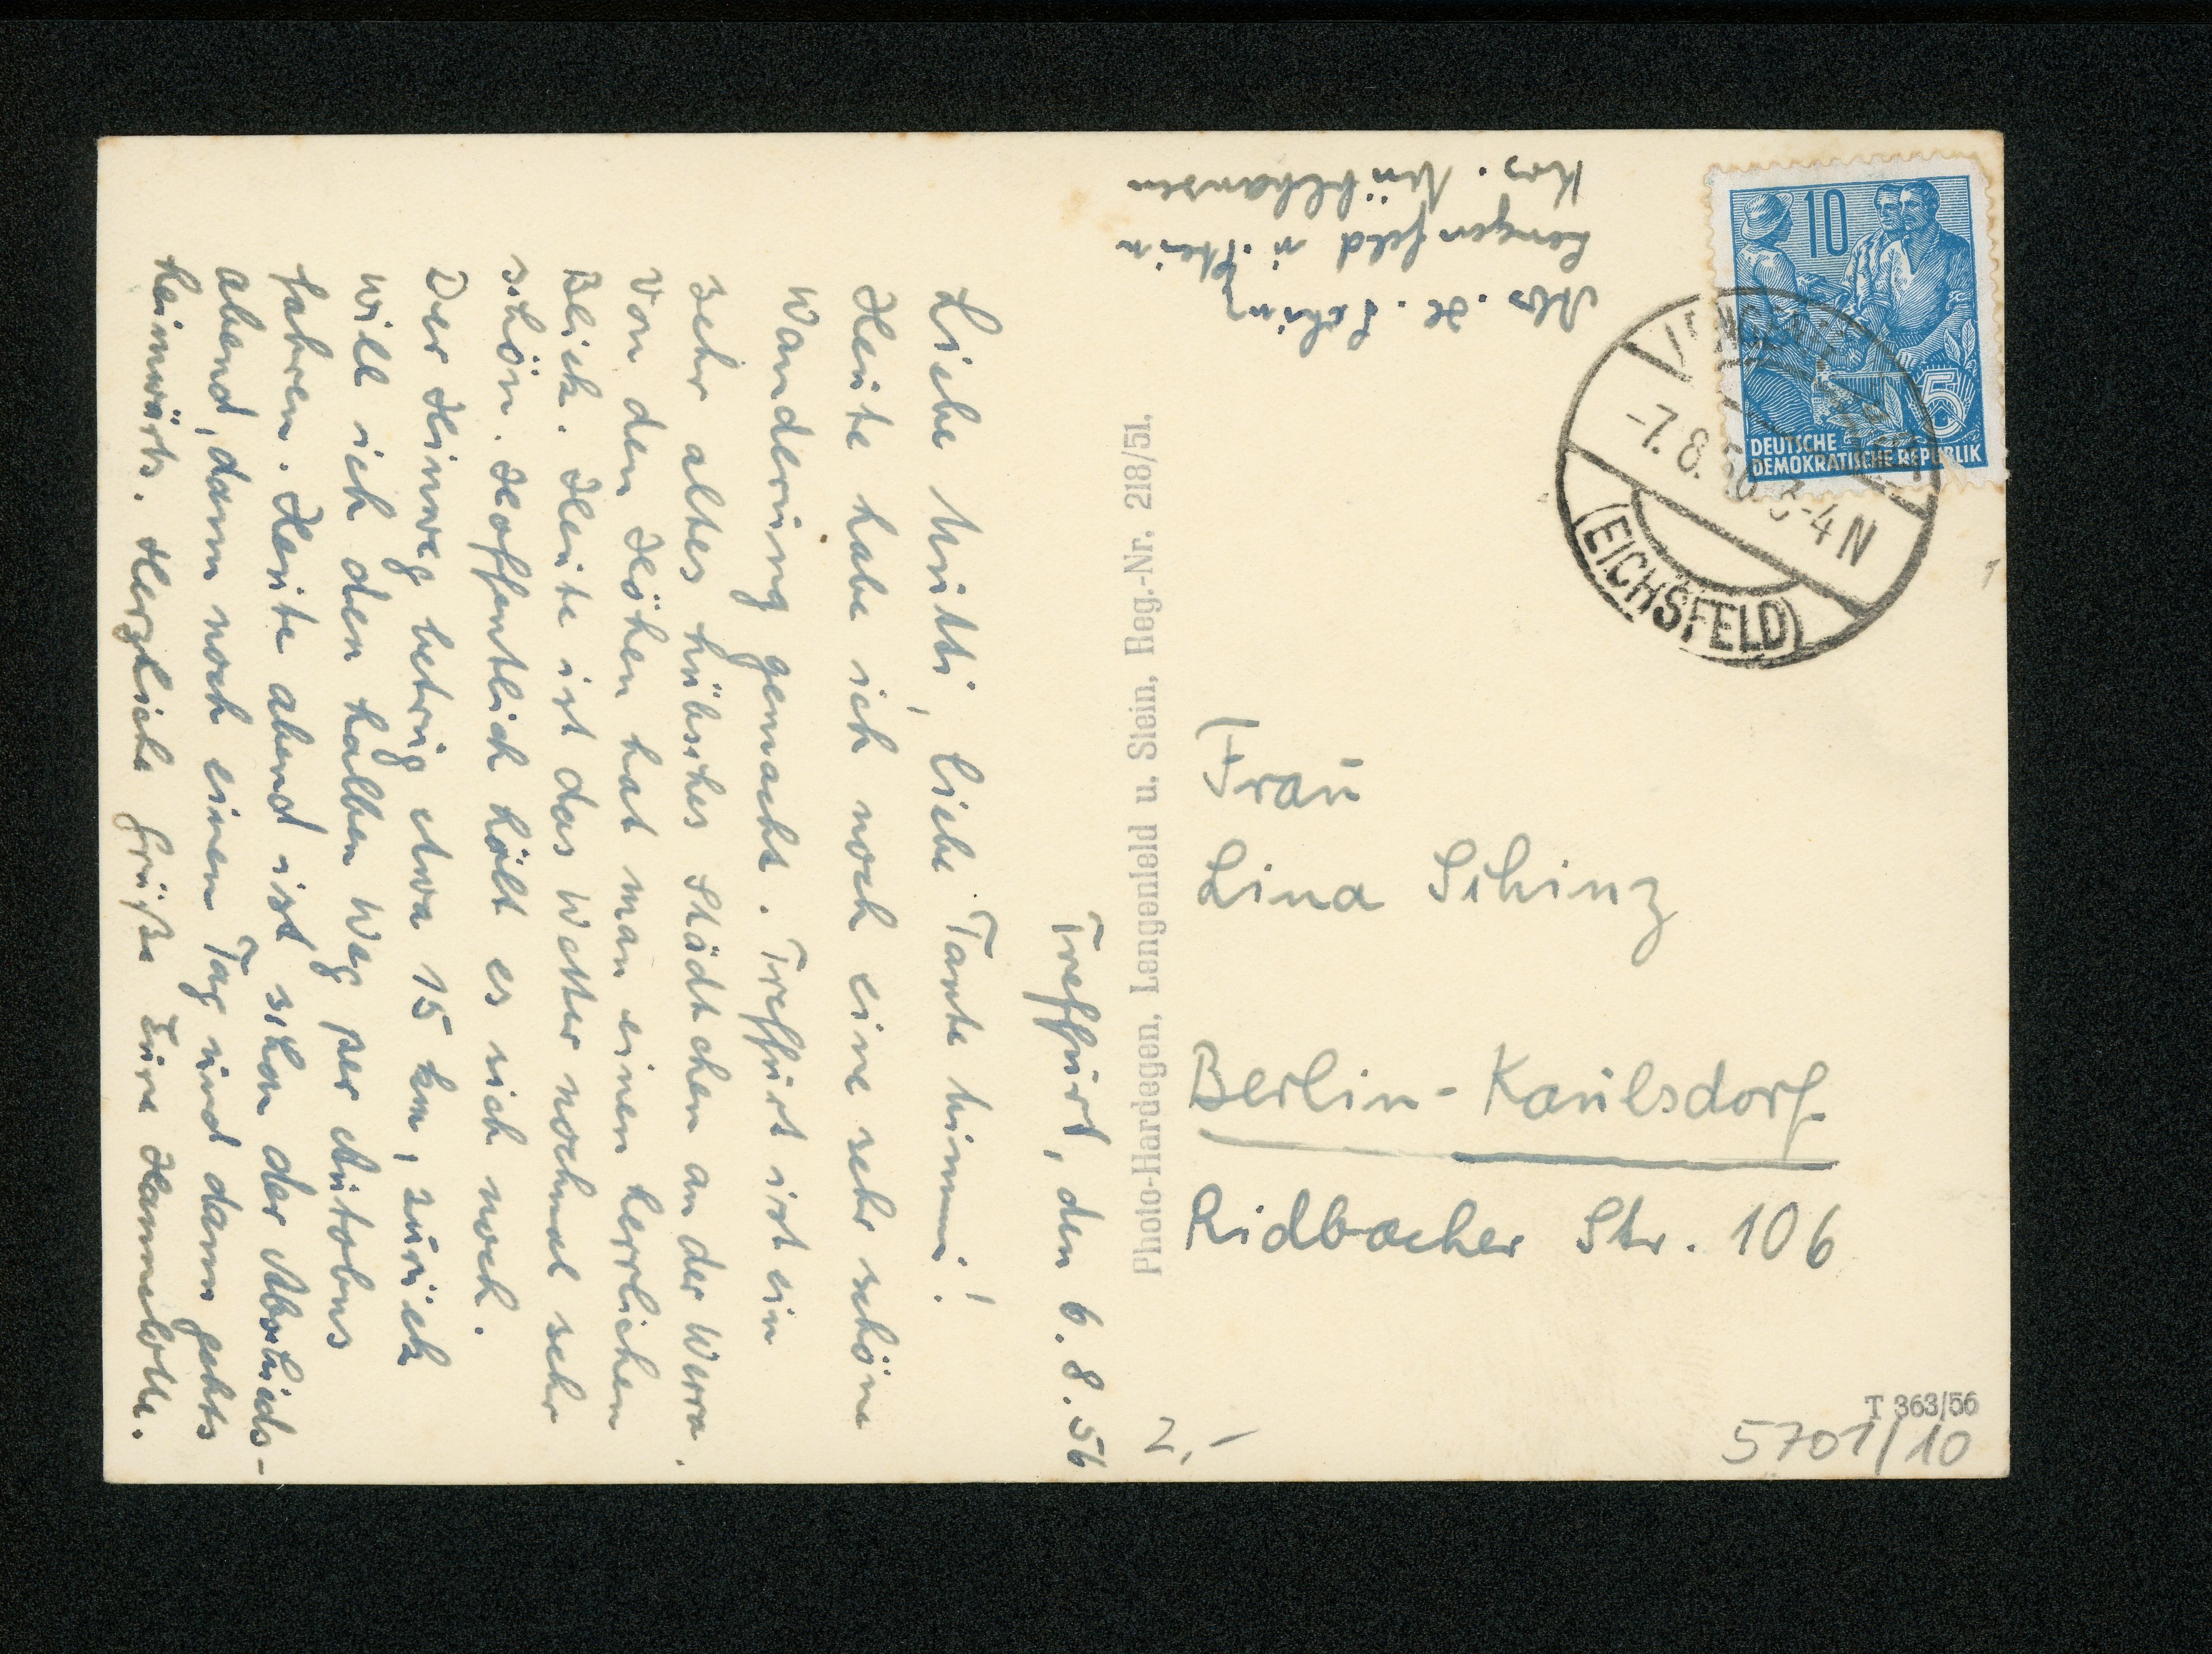 Treffurt, den 6.8.56
Liebe Mutti, liebe Tante Mimmi!
Heute habe ich noch eine sehr schöne
Wanderung gemacht. Treffurt ist ein
sehr altes hübsches Städtchen an der Werra.
Von den Höhen hat man einen herrlichen
Blick. Heute ist das Wetter nochmal sehr
schön. Hoffentlich hält es sich noch.
Der Hinweg betrug etwa 15 km, zurück
will ich den halben Weg per Autobus
fahren. Heute abend ist schon der Abschieds-
abend, dann noch einen Tag und dann gehts
heimwärts. Herzliche Grüße Eure Hannelotte.
Photo-Hardegen, Lengenfeld u. Stein, Reg.-Nr. 218/51.
Abs. H. Schinz
Lengenfeld u. Stein
Krs. Mühlhausen
10
5
DEUTSCHE
DEMOKRATISCHE REPUBLIK
-7.8.56 3-4N
(EICHSFELD)
Frau
Lina Schinz
Berlin-Kaulsdorf
Ridbacher Str. 106
2,-
T 363/56
5701/10